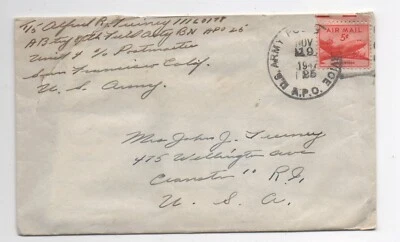 T/5 Alfred R. Tierney
A Btry 8th Field Arty BN APO 25
Unit 4 c/o Postmaster
San Francisco Calif.
U. S. Army.
U.S. ARMY POSTAL SERVICE
NOV
19
1947
25
A.P.O.
AIR MAIL
5¢
Mrs John J. Tierney
475 Wellington Ave
Cranston R.I.
U. S. A.